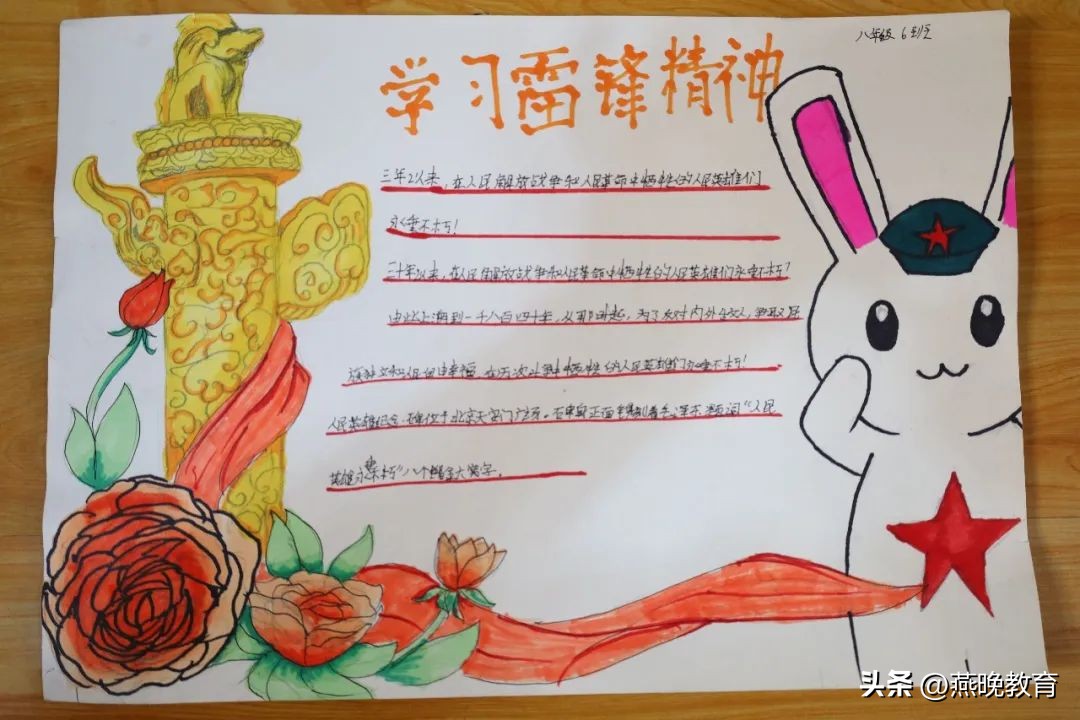 八年级 6班
学习雷锋精神
三年以来，在人民解放战争和人民革命中牺牲的人民英雄们
永垂不朽！
三十年以来，在人民解放战争和人民革命中牺牲的人民英雄们永垂不朽！
由此上溯到一千八百四十年，从那时起，为了反对内外敌人，争取民
族独立和人民自由幸福，在历次斗争中牺牲的人民英雄们永垂不朽！
人民英雄纪念碑位于北京天安门广场。石碑正面镌刻着毛泽东题词"人民
英雄永垂不朽"八个鎏金大字。
头条 @燕晚教育